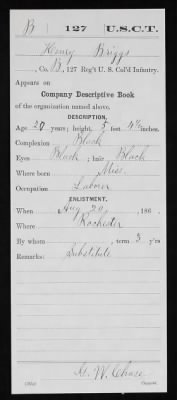 B | 127 | U.S.C.T.
Henry Briggs
, Co. B, 127 Reg't U. S. Col'd Infantry.
Appears on
Company Descriptive Book
of the organization named above.
DESCRIPTION.
Age 27 years; height 5 feet 4½ inches.
Complexion Black
Eyes Black; hair Black
Where born Miss.
Occupation Laborer
ENLISTMENT.
When Aug 20, 186 .
Where Rochester
By whom , term 3 y'rs
Remarks: Substitute
G. W. Chase
Copyist.